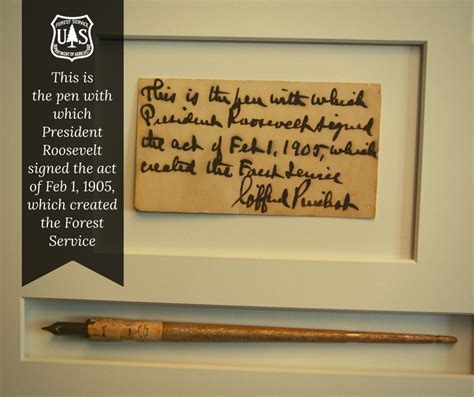 FOREST SERVICE
U S
DEPARTMENT OF AGRICULTURE
This is
the pen with
which
President
Roosevelt
signed the act
of Feb 1, 1905,
which created
the Forest
Service
This is the pen with which
President Roosevelt signed
the act of Feb 1, 1905, which
created the Forest Service
Gifford Pinchot